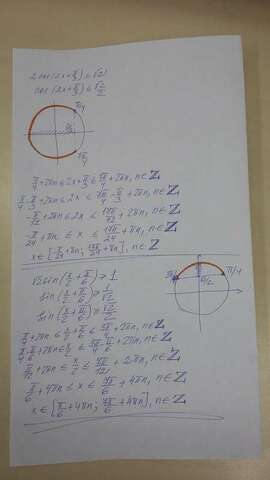 2cos(2x+π/3) ≤ √2
cos(2x+π/3) ≤ √2/2
π/4
√2/2
7π/4
π/4+2πn ≤ 2x+π/3 ≤ 7π/4+2πn, n∈Z
π/4-π/3+2πn ≤ 2x ≤ 7π/4-π/3+2πn, n∈Z
-π/12+2πn ≤ 2x ≤ 17π/12+2πn, n∈Z
-π/24+πn ≤ x ≤ 17π/24+πn, n∈Z
x∈[-π/24+πn; 17π/24+πn], n∈Z
√2sin(x/2+π/6) ≥ 1
sin(x/2+π/6) ≥ 1/√2
sin(x/2+π/6) ≥ √2/2
π/4
√2/2
π/4+2πn ≤ x/2+π/6 ≤ 3π/4+2πn, n∈Z
π/4-π/6+2πn ≤ x/2 ≤ 3π/4-π/6+2πn, n∈Z
π/12+2πn ≤ x/2 ≤ 7π/12+2πn, n∈Z
π/6+4πn ≤ x ≤ 7π/6+4πn, n∈Z
x∈[π/6+4πn; 7π/6+4πn], n∈Z